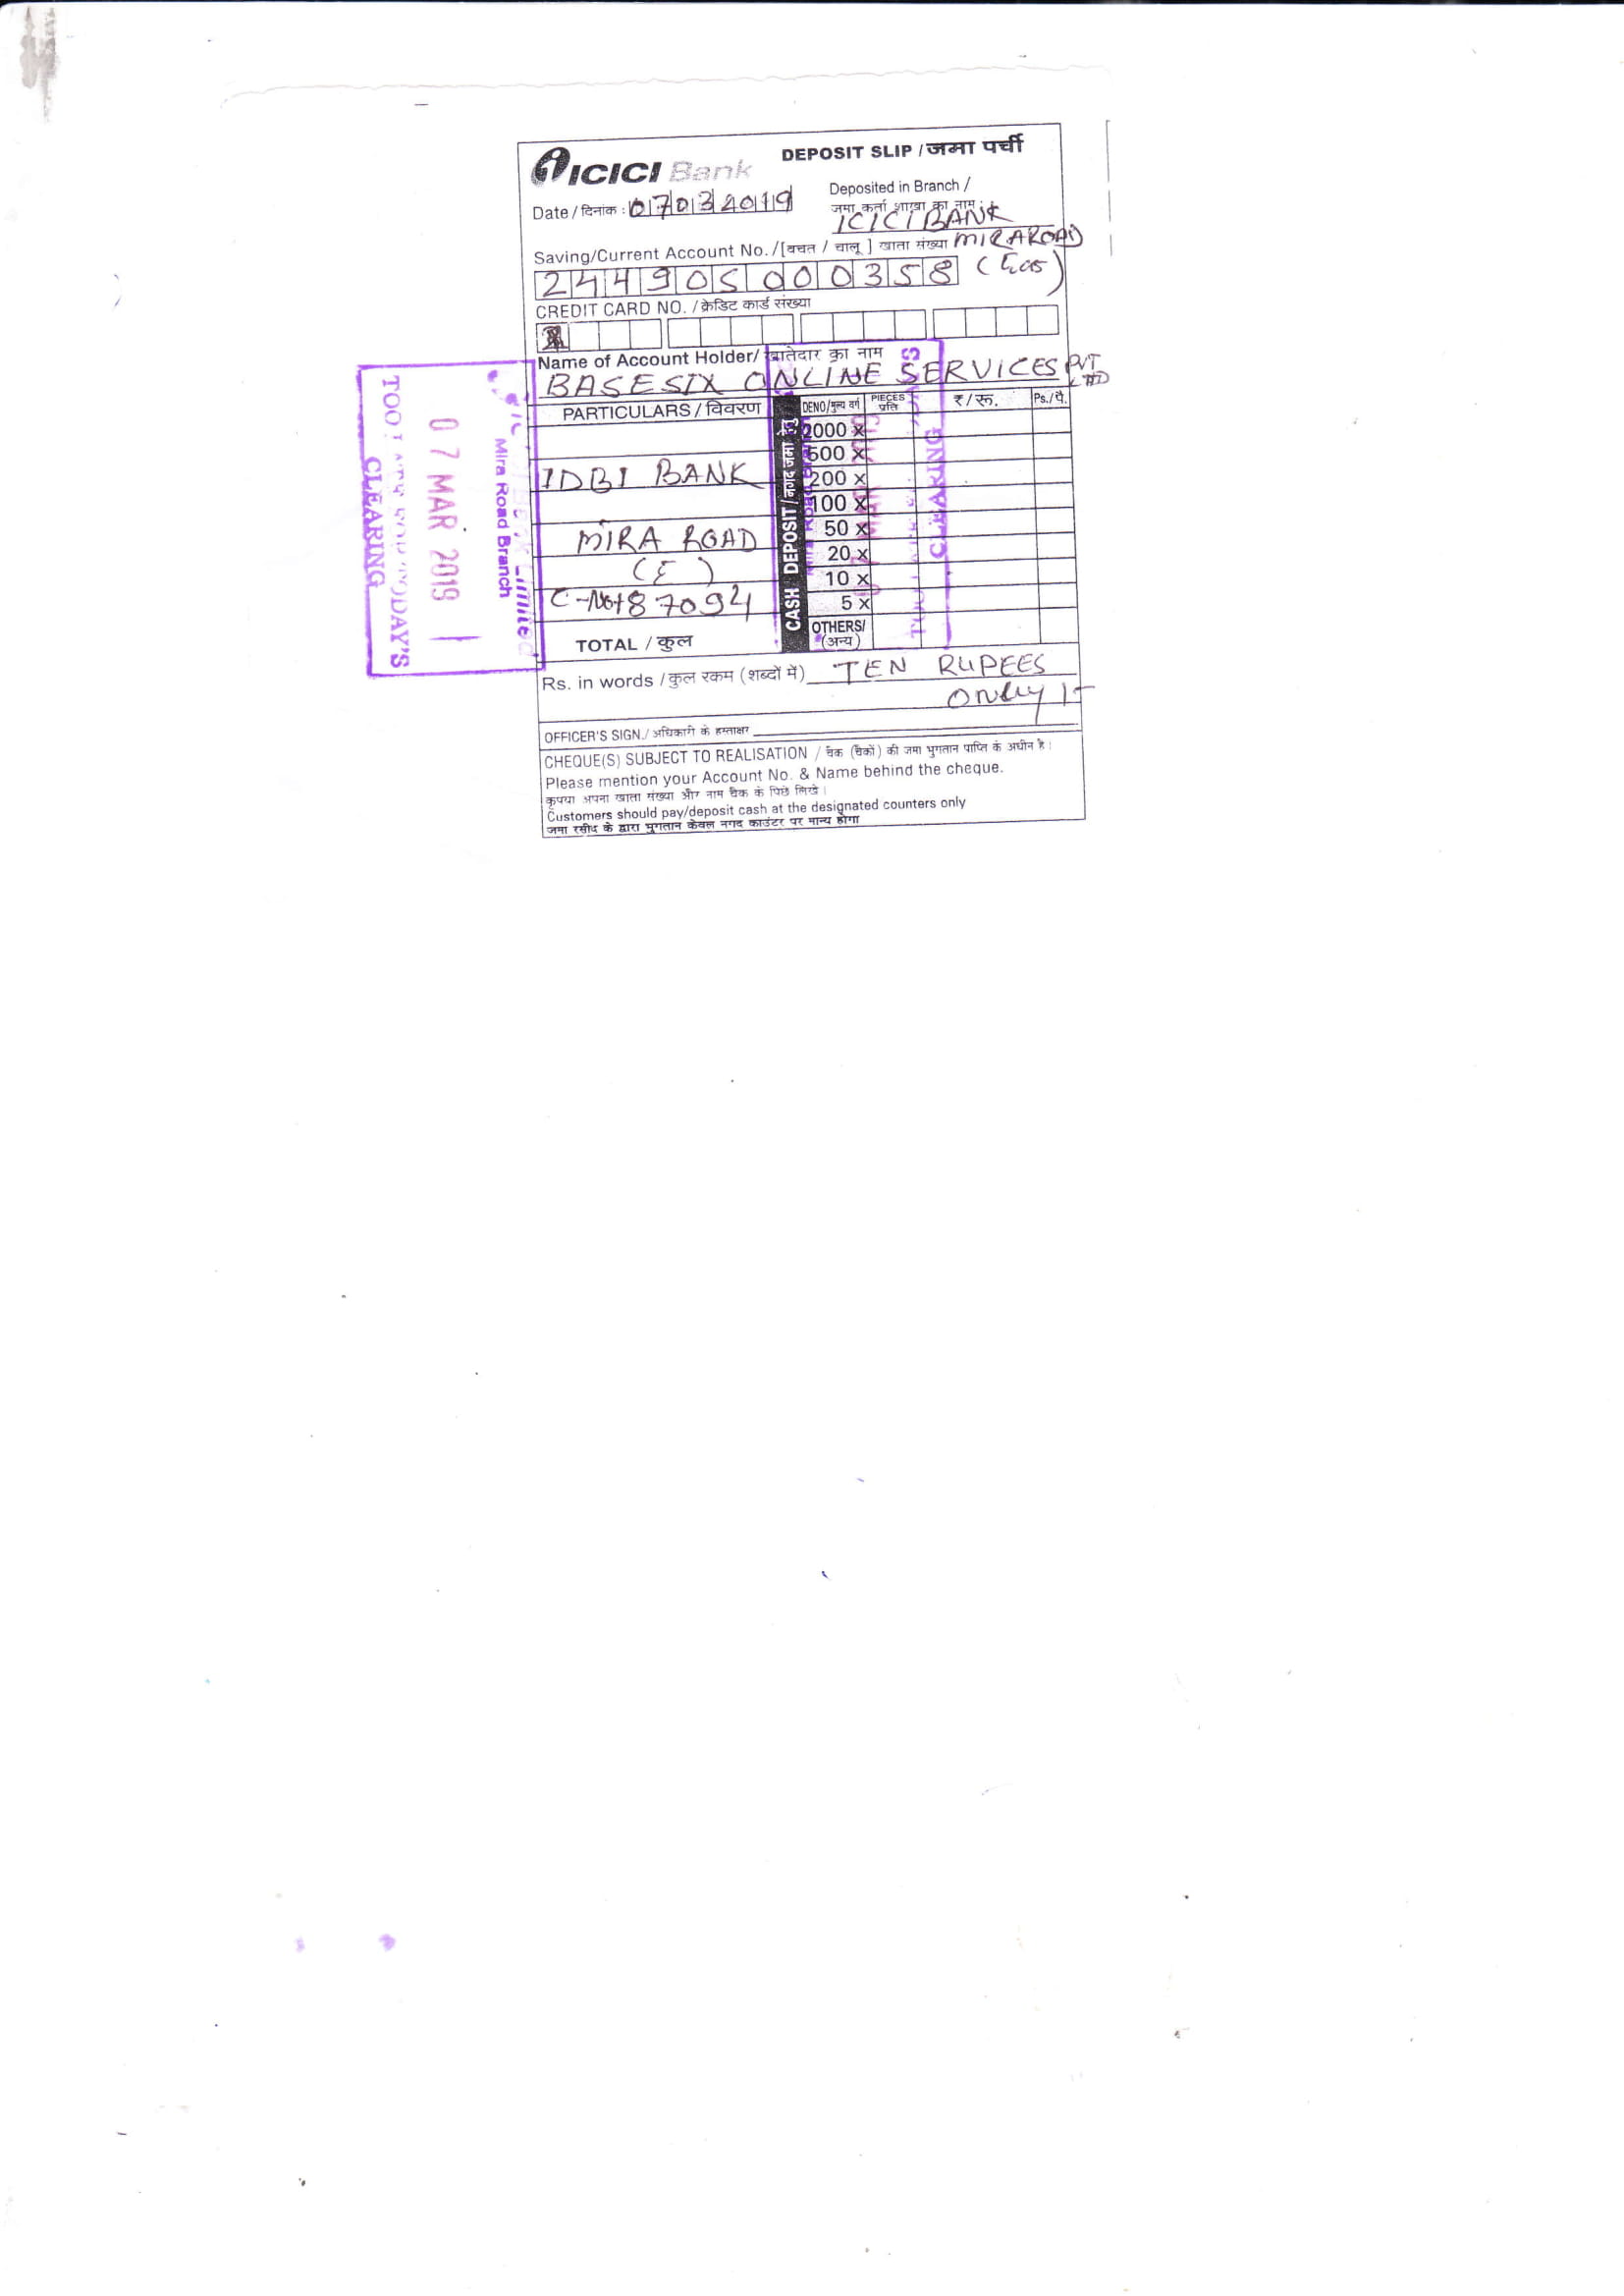 ICICI Bank
DEPOSIT SLIP / जमा पर्ची
Date / दिनांक : 07032019
Deposited in Branch /
जमा कर्ता शाखा का नाम :
ICICI BANK
Saving/Current Account No. /[बचत / चालू ] खाता संख्या MIRAROAD
244905000358
CREDIT CARD NO. / क्रेडिट कार्ड संख्या
Name of Account Holder/ खातेदार का नाम
BASESIX ONLINE SERVICES PVT
LTD
PARTICULARS / विवरण
DENO/मुल्य वर्ग
PIECES
प्रति
₹ / रू.
Ps./पै.
CASH DEPOSIT / नगद जमा हेतु
2000 x
500 x
IDBI BANK
200 x
100 x
50 x
MIRA ROAD
20 x
(E)
10 x
C-No 487094
5 x
OTHERS/
(अन्य)
TOTAL / कुल
Rs. in words / कुल रकम (शब्दों में) TEN RUPEES
ONLY /-
OFFICER'S SIGN./ अधिकारी के हस्ताक्षर
CHEQUE(S) SUBJECT TO REALISATION / चेक (चेकों) की जमा भुगतान प्राप्ति के अधीन है।
Please mention your Account No. & Name behind the cheque.
कृपया अपना खाता संख्या और नाम चैक के पिछे लिखे।
Customers should pay/deposit cash at the designated counters only
जमा रसीद के द्वारा भुगतान केवल नगद काउंटर पर मान्य होगा
Limited
Mira Road Branch
07 MAR 2019
TODAY'S
CLEARING
CLEARING